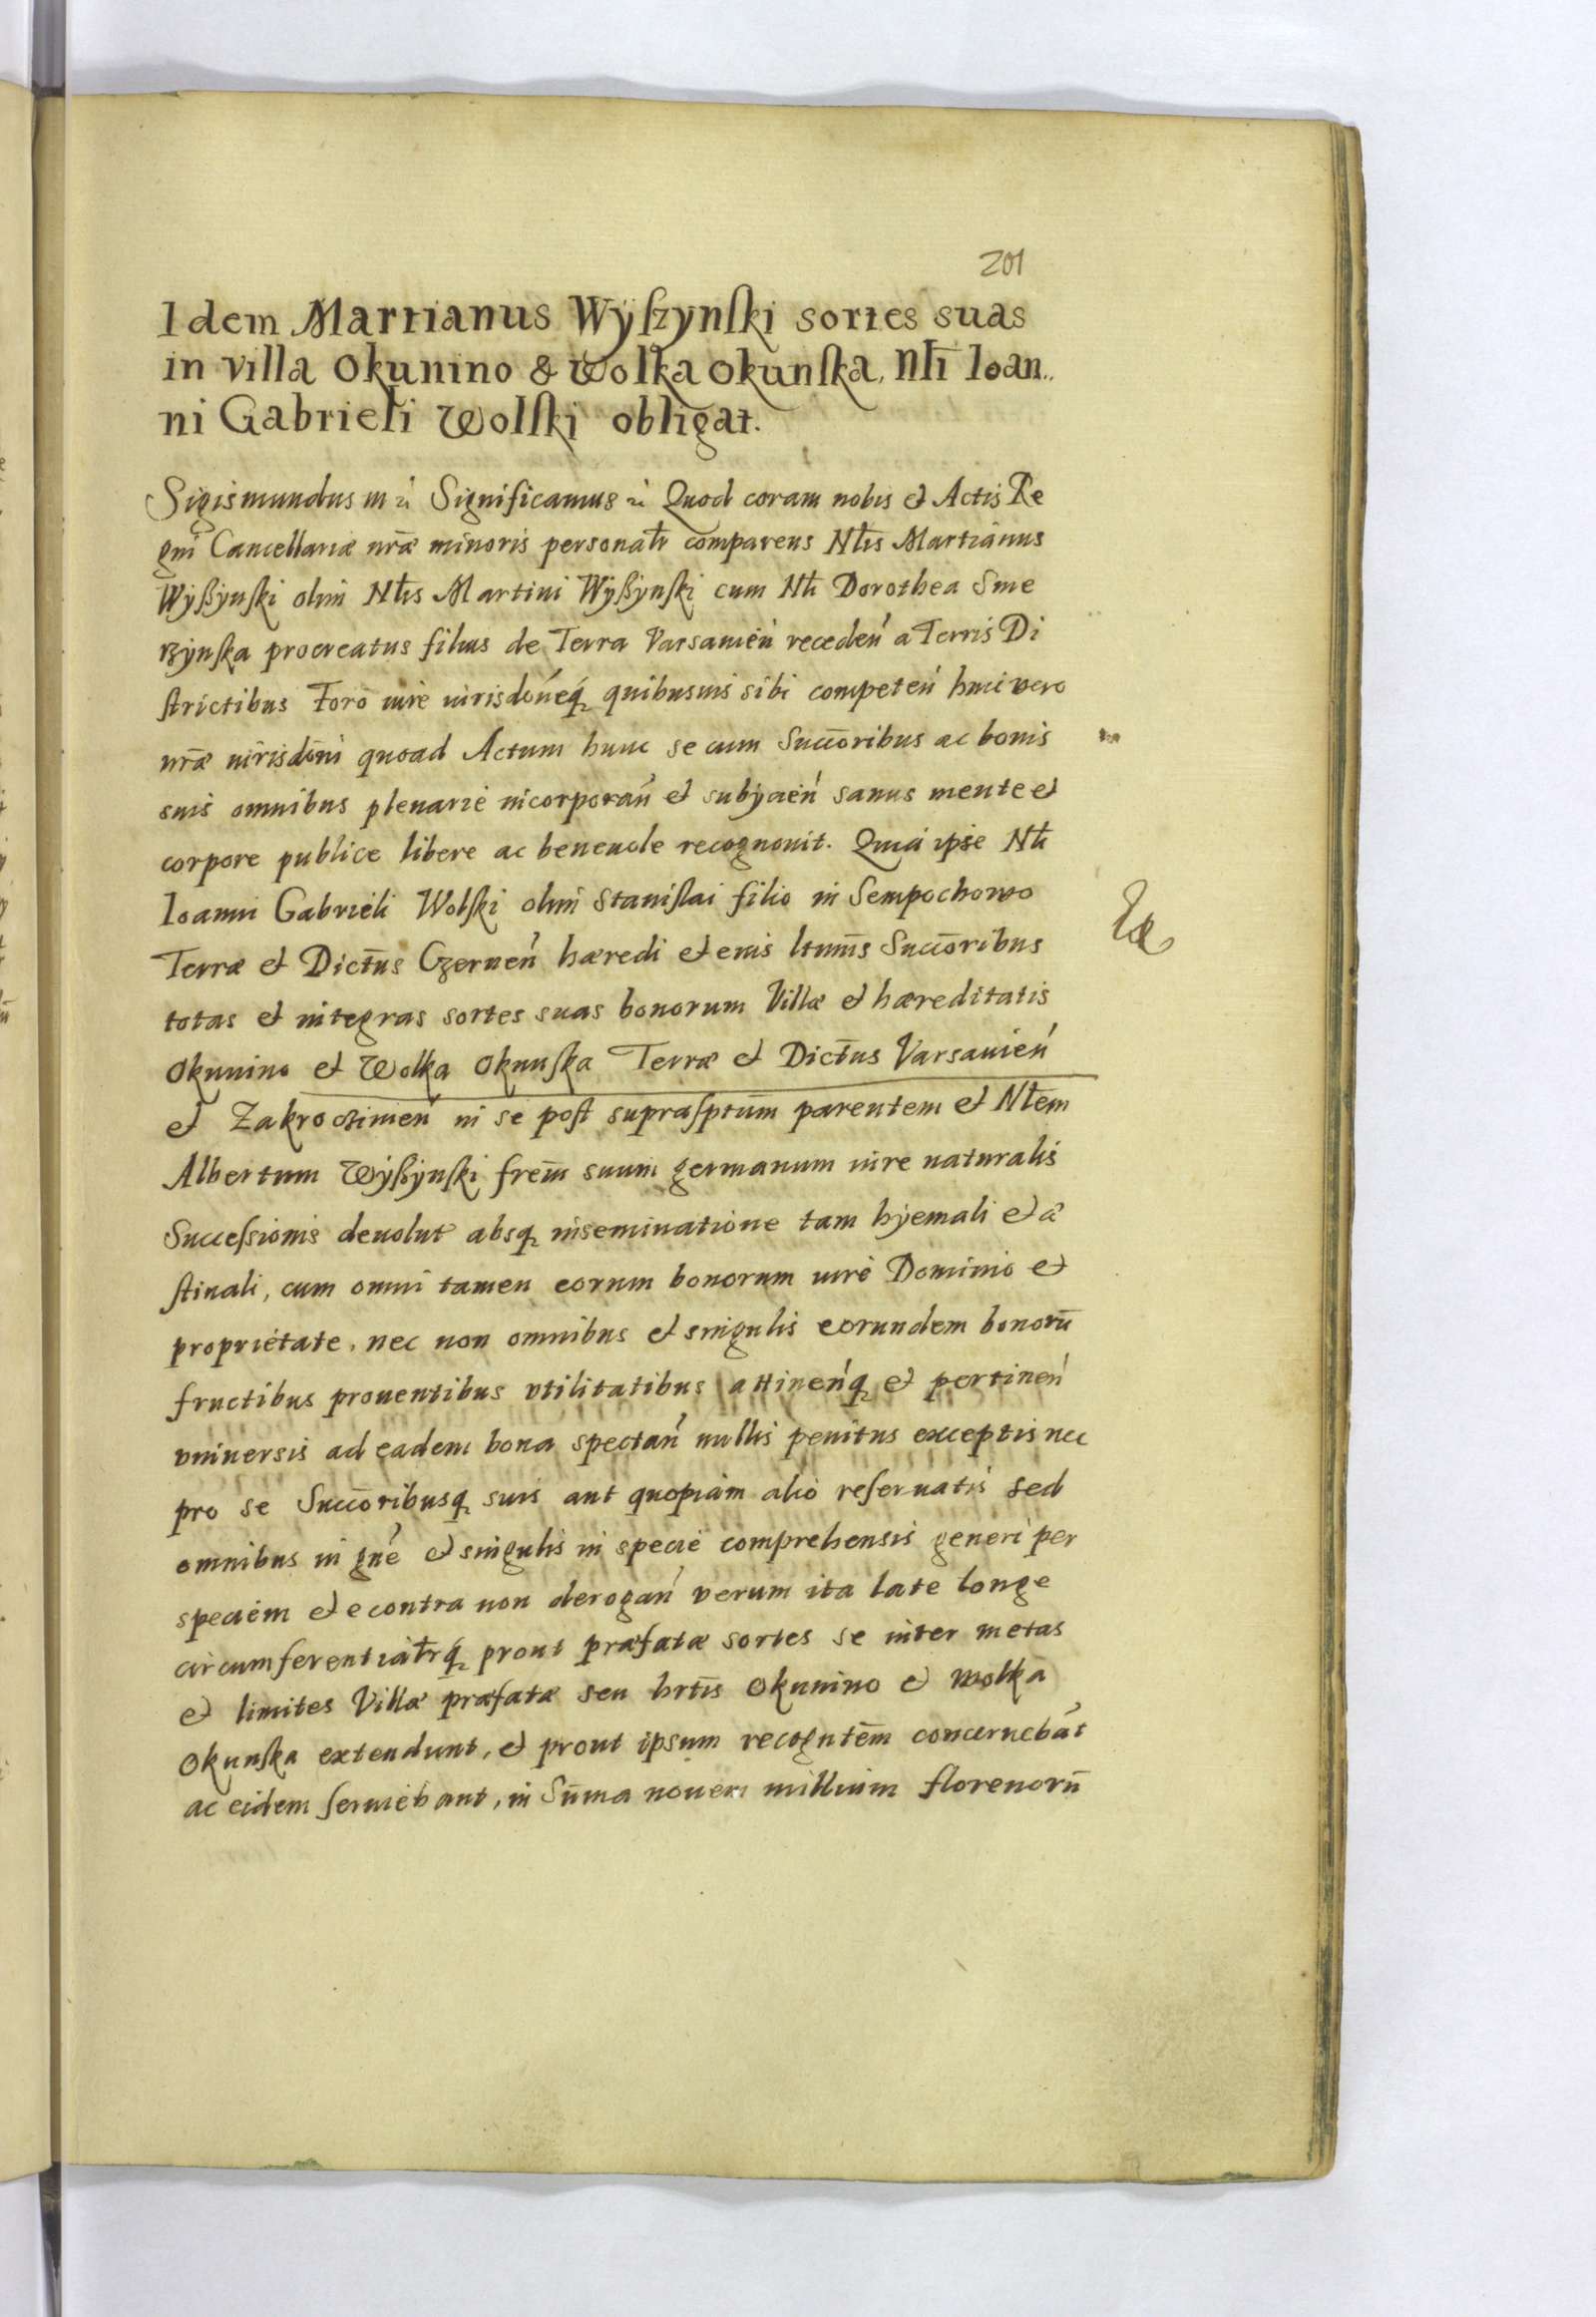 201
Idem Martianus Wÿſzynſki sortes suas
in villa Okunino & Wolka Okunſka, Nłi Ioan..
ni Gabrieli Wolſki obligat.
Sigismundus III &c Significamus &c Quod coram nobis et Actis Re
gni Cancellariæ nr̄æ minoris personałr comparens Nłis Martianus
Wÿßÿnſki olim Nłis Martini Wÿßÿnſki cum Nłi Dorothea Sme
rzÿnſka procreatus filius de Terra Varsavień receden̄ a Terris Di
ſtrictibus Foro iure iurisdońeq́ʒ quibusuis sibi competeń huic vero
nr̄æ iurisdōni quoad Actum hunc se cum Succōribus ac bonis
suis omnibus plenarie incorporań et subÿcień sanus mente et
corpore publice libere ac beneuole recognouit. Quia ipse Nłi
Ioanni Gabrieli Wolſki olim Staniſlai filio in Sempochowo
Terræ et Dict̄us Czerneń hæredi et eius ltimīs Succōribus
totas et integras sortes suas bonorum Villæ et hæreditatis
Okunino et Wolka Okunſka Terræ et Dict̄us Varsauień
et Zakroczimeń in se poſt supraſptūm parentem et Nłem
Albertum Wÿßÿnſki frēm suum germanum iure naturalis
Succeſsionis deuolut absqʒ inseminatione tam hÿemali et æ
ſtiuali, cum omni tamen eorum bonorum iure Dominio et
proprietate, nec non omnibus et singulis eorundem bonorū
fructibus prouentibus vtilitatibus attineńqʒ et pertineń
vniuersis ad eadem bona spectań nullis penitus exceptis nec
pro se Succōribusqʒ suis aut quopiam alio reſeruatis sed
omnibus in gńe et singulis in specie comprehensis generi per
speciem et e contra non derogań verum ita late longe
circumferentiałrq́ʒ prout præfatæ sortes se inter metas
et limites Villæ præfatæ seu hrt̄is Okunino et Wolka
Okunſka extendunt, et prout ipsum recogntēm concernebāt
ac eidem ſeruiebant, in Sūma nouem millium florenorū